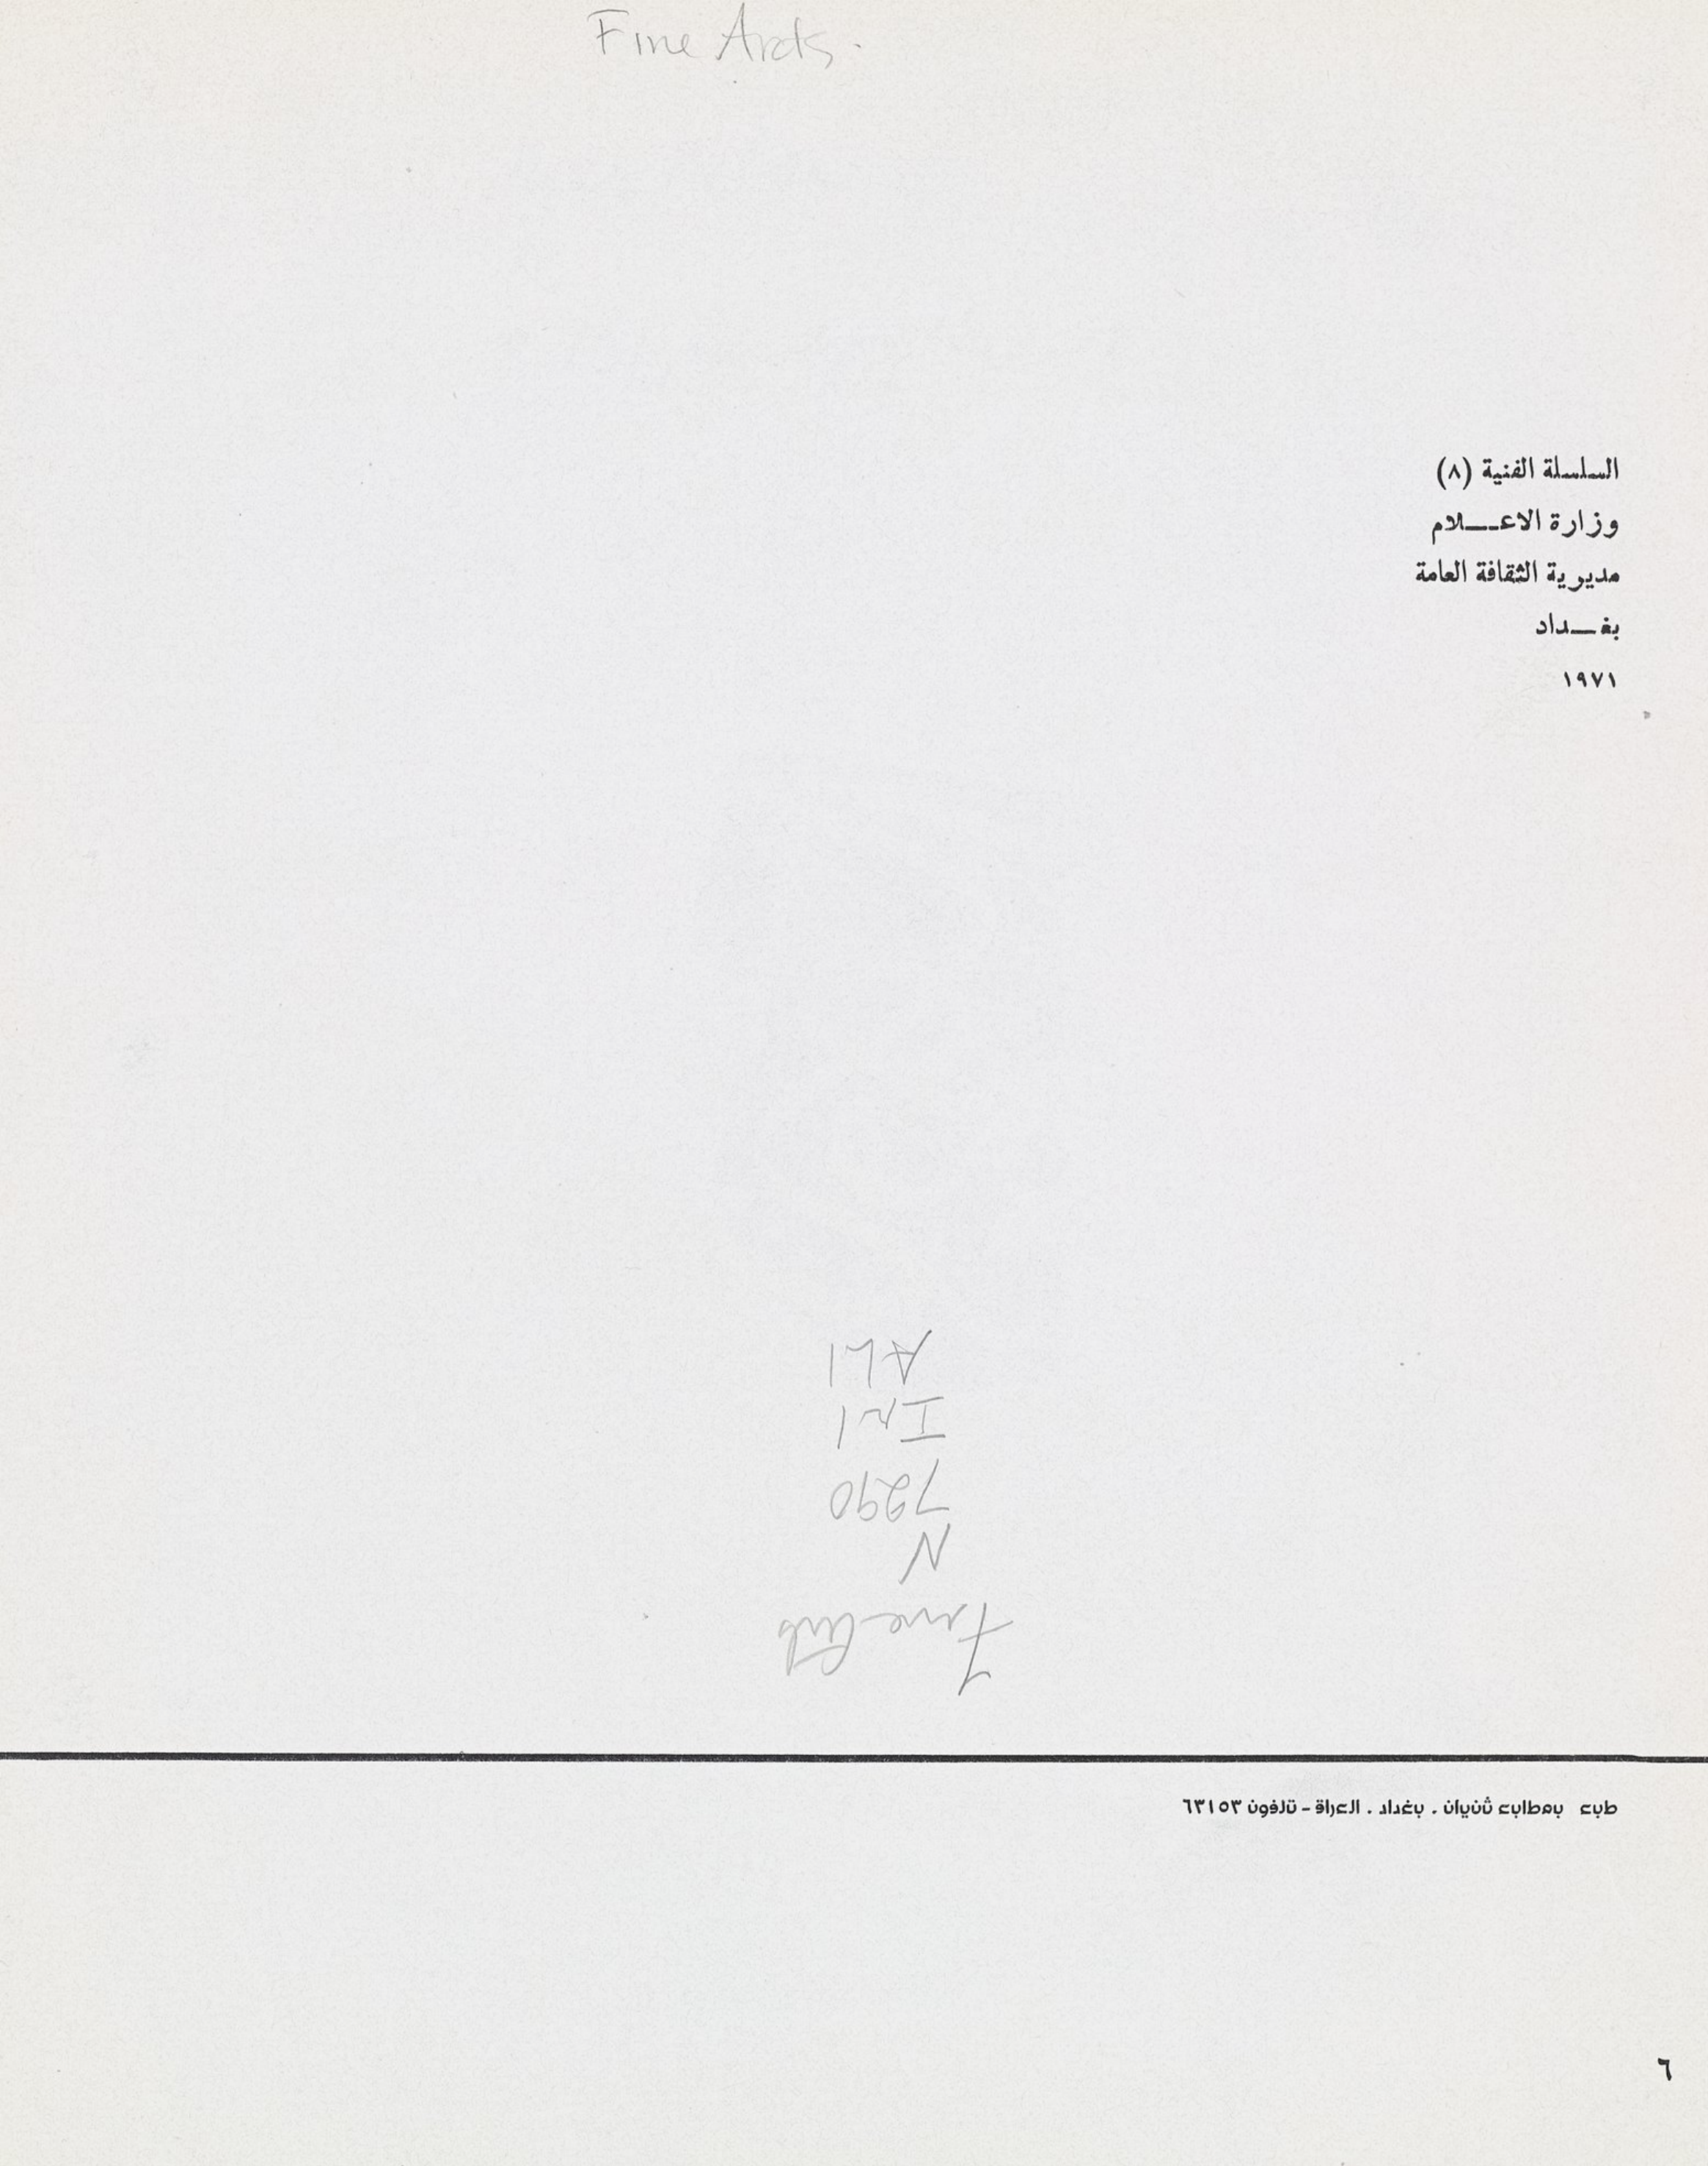 Fine Arts.
السلسلة الفنية (٨)
وزارة الاعـــلام
مديرية الثقافة العامة
بغـــداد
١٩٧١
Fine Arts
N
7290
In1
AL1
طبع بمطابع ثنيان . بغداد . العراق - تلفون ٦٣١٥٣
٦